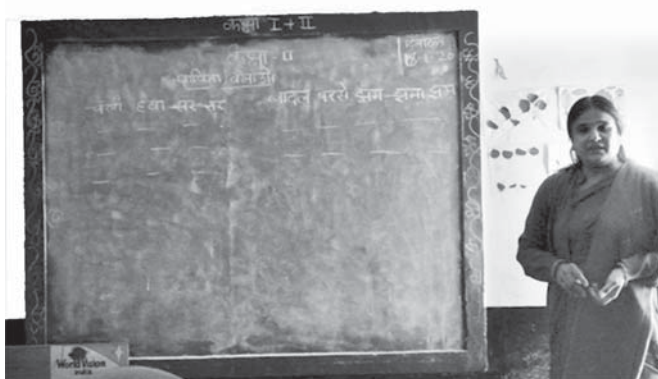 कक्षा I + II
कक्षा - II
दिनांक
कविता बनाओ।
चली हवा सर-सर
बादल बरसे झम-झमा झम
World Vision
INDIA